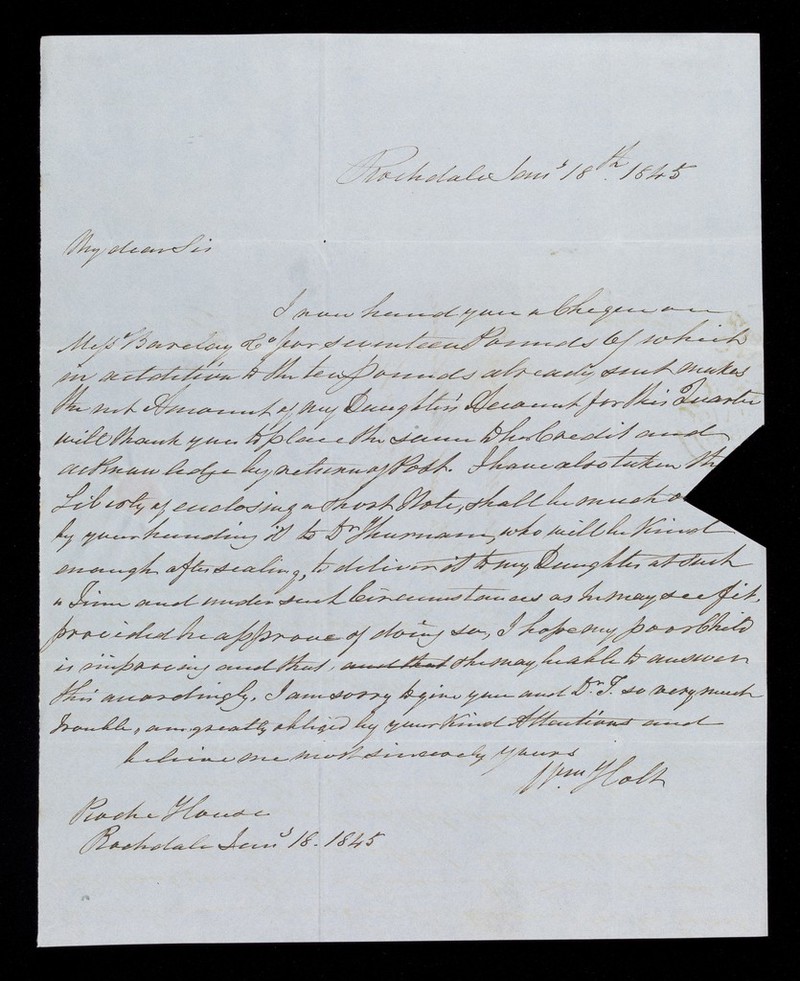 Rochdale Jany 18th. 1845
My dear Sir
I now hand you a Cheque on
Messrs Barclay & Co for seventeen Pounds 6/ which
in addition to the ten pounds already sent makes
the net Amount of my Daughter's Account for this Quarter
will thank you to place the same to her Credit and
acknowledge by return of Post. I have also taken the
Liberty of enclosing a short Note, shall be much
by your handing it to Dr Thurnam, who will be kind
enough after sealing, to deliver it to my Daughter at such
a Time and under such Circumstances as he may see fit,
provided he approve of doing so, I hope my poor Child
is improving and that, and that she may be able to answer
this accordingly. I am sorry to give you and Dr. T. so very much
trouble, am greatly obliged by your kind Attentions and
believe me most sincerely yours
Wm Holt
Roche House
Rochdale Jany 18. 1845